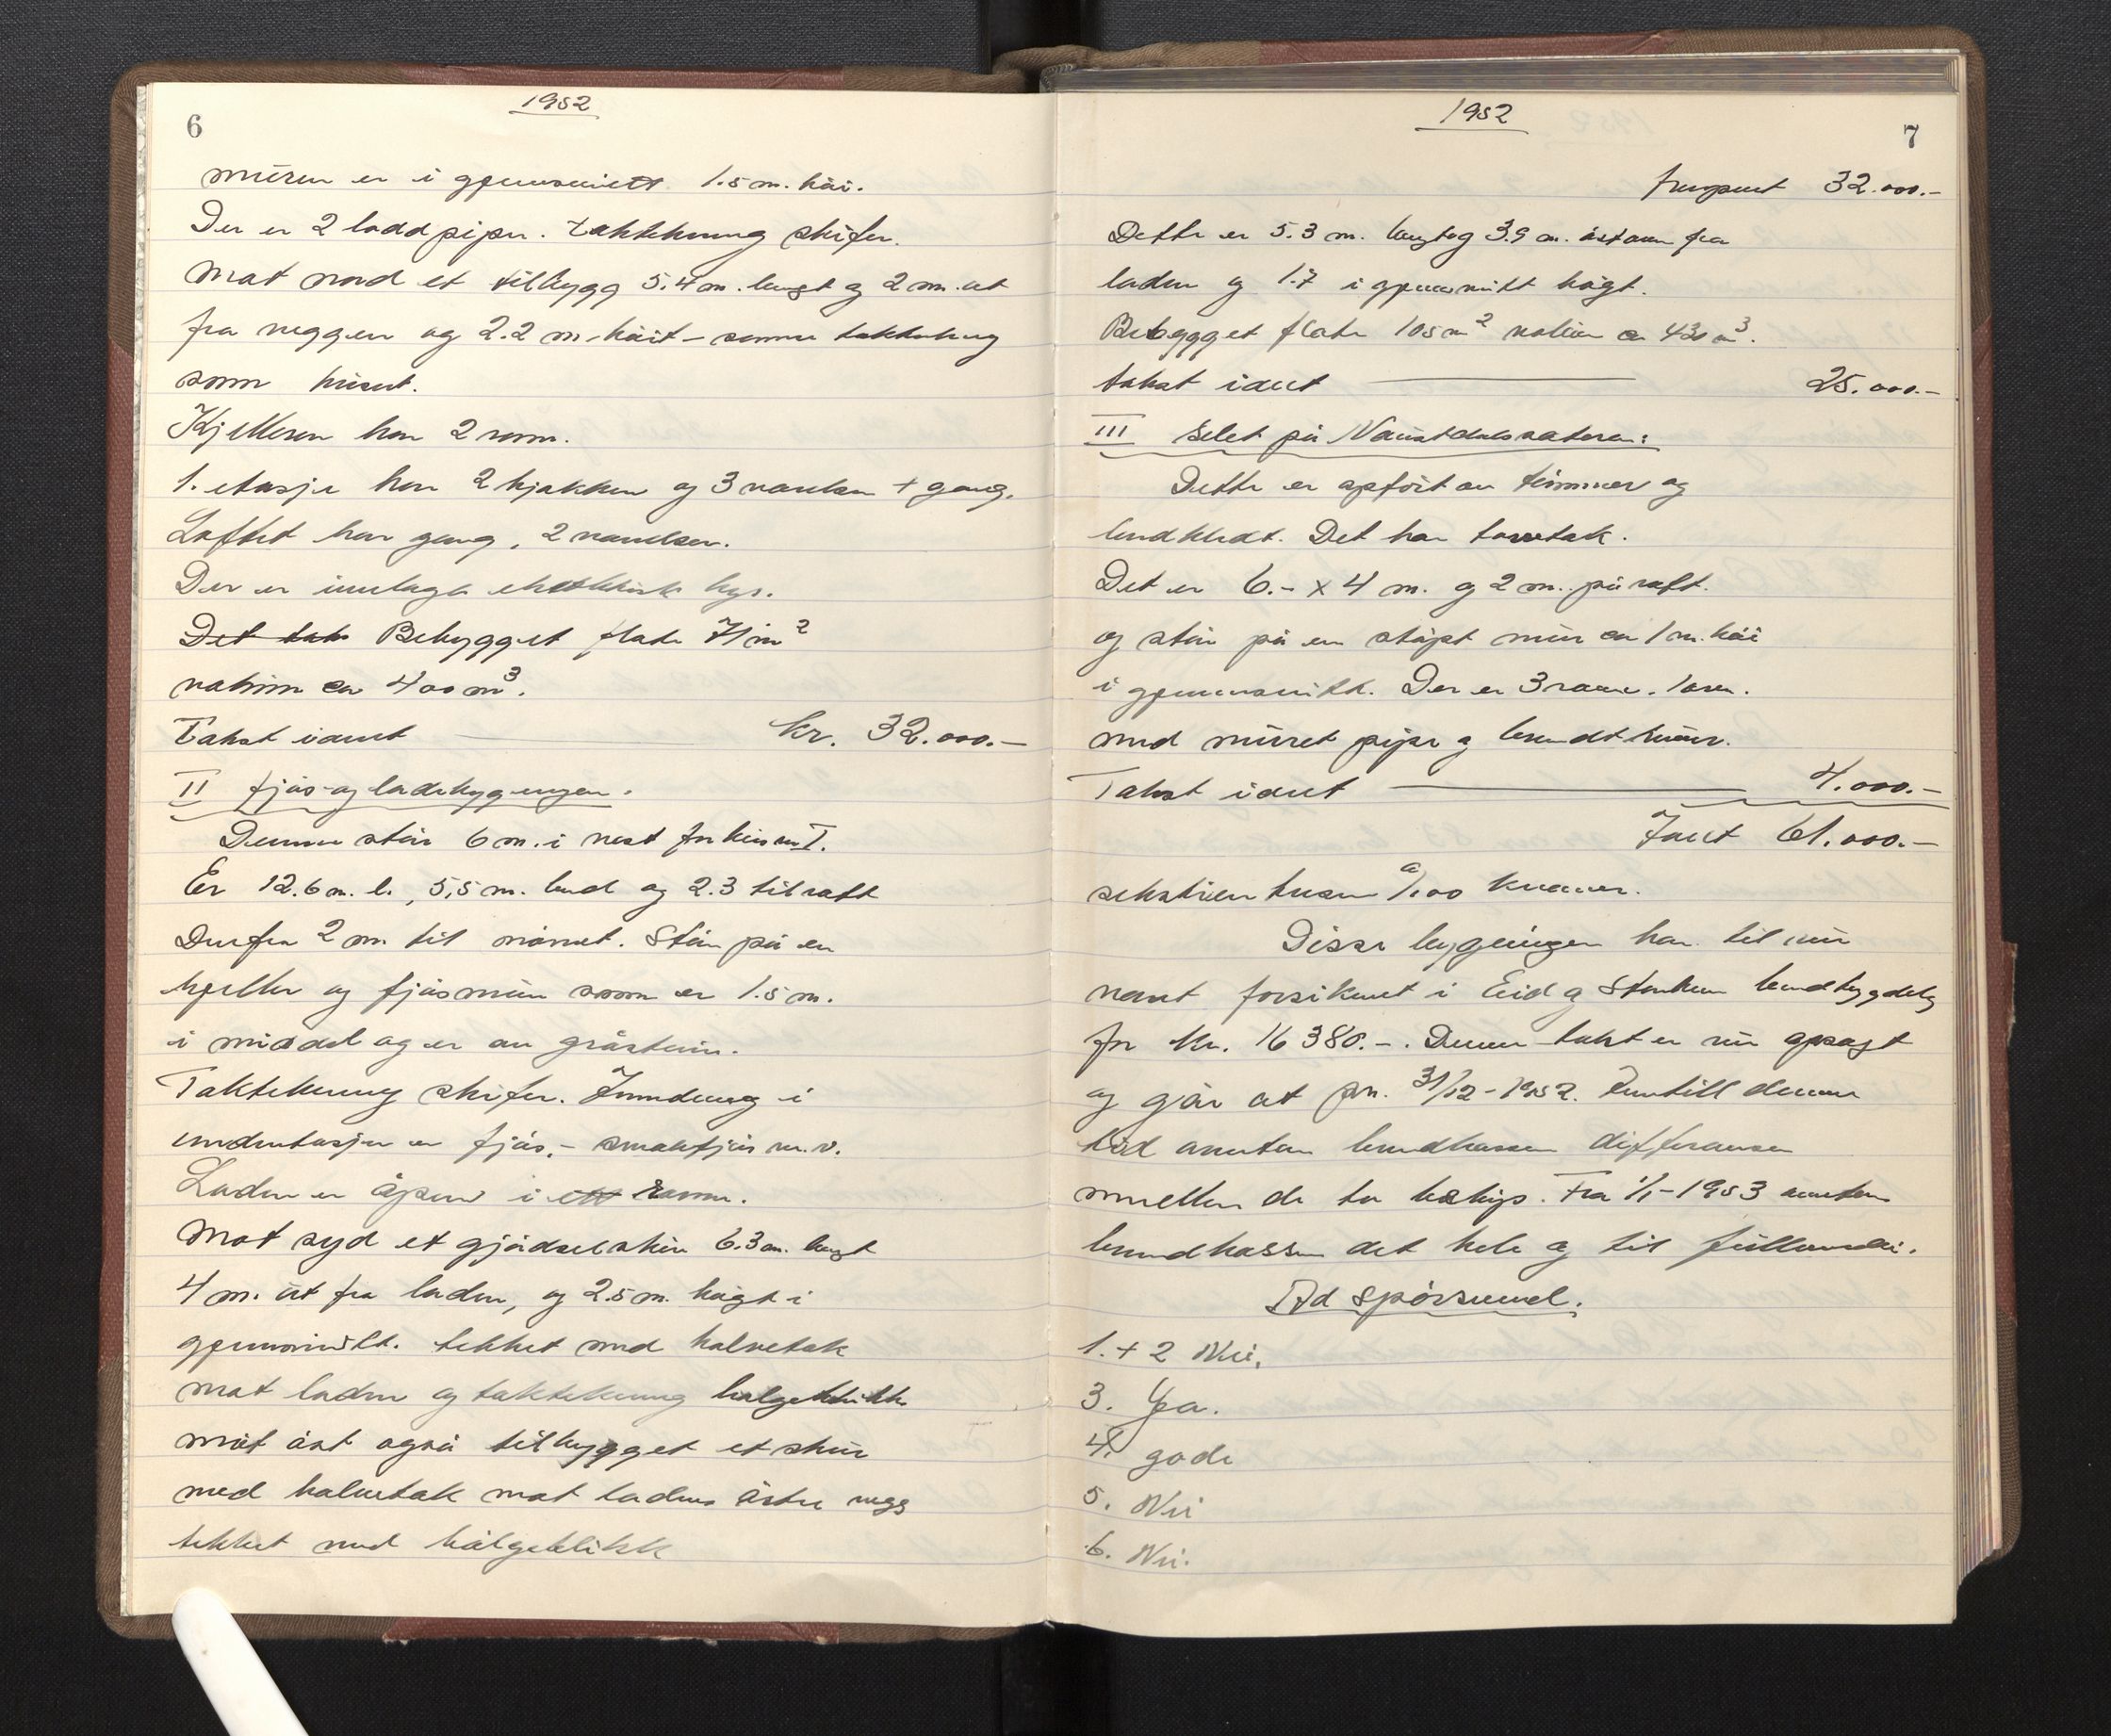 1952
6
muren er i gjennsnitt 1.5 m. høi.
Der er 2 lodd piper. Taktekning skifer.
Mot nord et tilbygg 5.4 m. langt og 2 m. ut
fra veggen og 2.2 m. høit – samme taktekning
som huset.
Kjelleren har 2 rom.
1. etasje har 2 kjøkken og 3 værelser + gang.
Loftet har gang, 2 værelser.
Der er innlagt elektrisk lys.
Det tak Bebygget flate 71 m²
volum ca 400 m³.
Takst idut kr. 32.000.–
II fjøs- og ladebygningen.
Denne står 6 m. i vest for hus nr I.
Er 12.6 m. l., 5,5 m. bred og 2.3 til raft
Derfra 2 m. til mønet. Står på en
kjeller og fjøsmur som er 1.5 m.
i middel og er av gråstein.
Taktekning skifer. Inndeling i
underetasjen er fjøs, – smalefjøs m.v.
Laden er åpen i ett rom.
Mot syd et gjødselskur 6.3 m. langt
4 m. ut fra laden, og 2.5 m. høgt i
gjennomsnitt. tekket med halvetak
mot laden og taktekning bølgeblikk
mot øst også tilbygget et skur
med halvetak mot ladens østre vegg
tekket med bølgeblikk
1952
7
fra̱mført 32.000.–
Dette er 5.3 m. langt og 3.9 m. østover fra
laden og 1.7 i gjennsnitt høgt.
Bebygget flate 105 m² volum ca 430 m³.
takst idut 25.000.–
III Selet på Naustdalsvatnet:
Dette er opført av tømmer og
bordkledt. Det har torvtak.
Det er 6.– x 4 m. og 2 m. på raft.
og står på en støpt mur ca 1 m. høi
i gjennomsnitt. Der er 3 rom. 1 ovn.
med muret pipe og brandmur.
Takst idut 4.000.–
Idut 61.000.–
sekstien tusen ⁰/100 kroner.
Disse bygninger har til nu
vært forsikret i Eid og Stårheim brandbygdelag
for kr. 16 380.–. Denne takst er nu opsagt
og går ut pr. 31/12-1952. Inntill denne
tid overtar brandkassen differansen
mellem de to beløp. Fra 1/1-1953 overtar
brandkassen det hele og til full verdi.
Ad spørsmål:
1. + 2 Nei.
3. Ja.
4. gode
5. Nei
6. Nei.